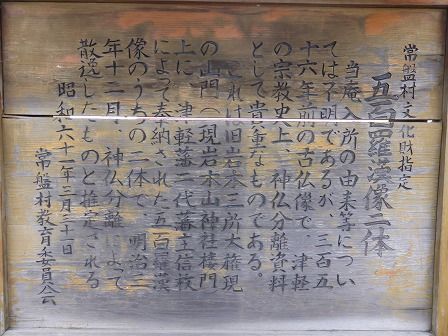 常盤村文化財指定
五百羅漢像二体
当庵入所の由来等につい
ては不明であるが、三百五
十六年前の古仏像で津軽
の宗教史上、神仏分離資料
として貴重なものである。
これは旧岩木三所大権現
の山門(現岩木山神社楼門)
上に、津軽藩二代藩主信枚
によって奉納された五百羅漢
像のうちの二体で、明治三
年十二月、神仏分離によって
散逸したものと推定される
昭和六十一年三月三十一日
常盤村教育委員会